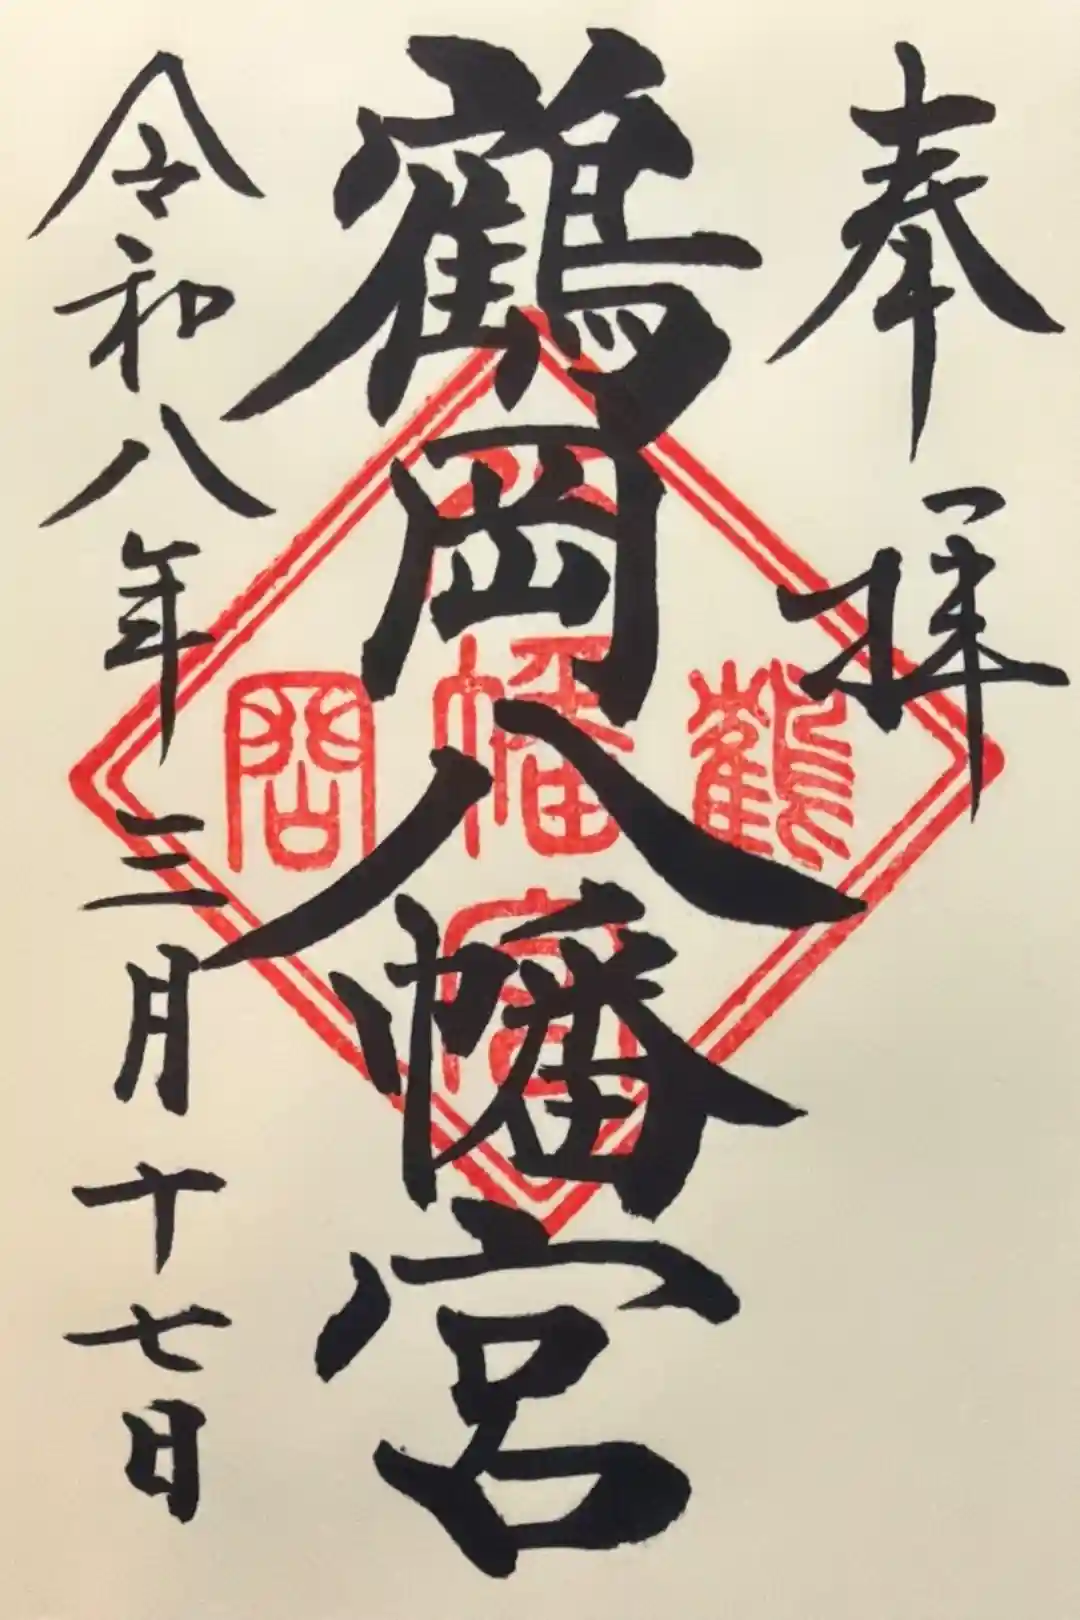 奉拝
鶴岡八幡宮
令和八年三月十七日
鶴岡
八幡
宮